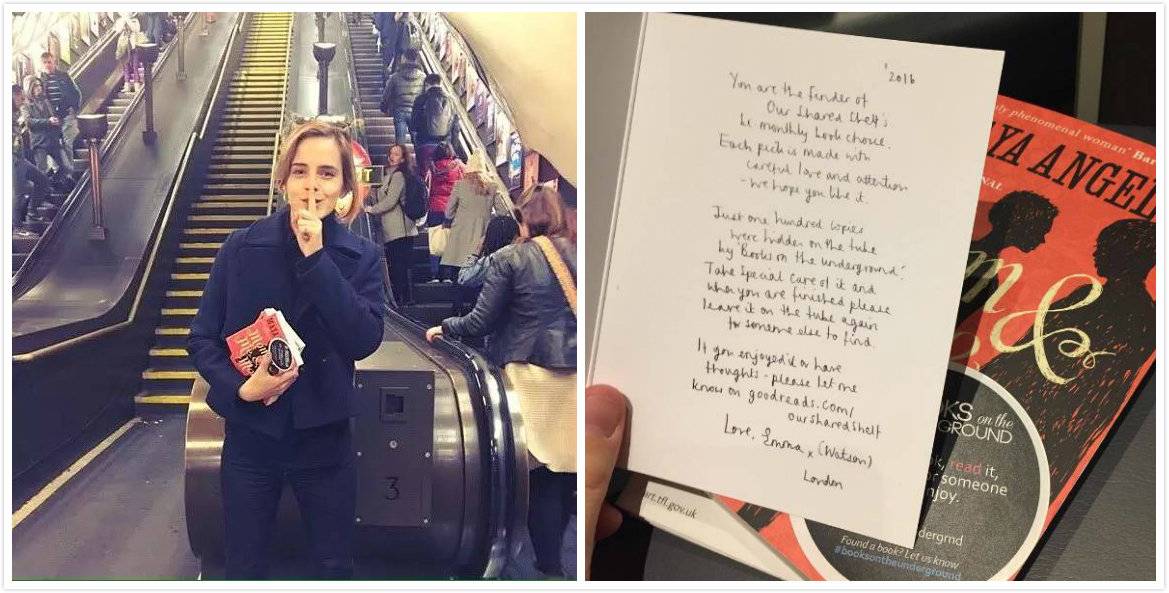 3
'2016
You are the finder of
Our Shared Shelf's
bi monthly book choice.
Each pick is made with
careful love and attention
- we hope you like it.
Just one hundred copies
were hidden on the tube
by 'Books on the underground'.
Take special care of it and
when you are finished please
leave it on the tube again
for someone else to find.
If you enjoyed it or have
thoughts - please let me
know on goodreads.com/
oursharedshelf
Love, Emma x (Watson)
London
phenomenal woman'
YA ANGEL
m &
KS on the
GROUND
read it,
someone
njoy.
dergrnd
Found a book? Let us know
#booksontheunderground
.tfl.gov.uk